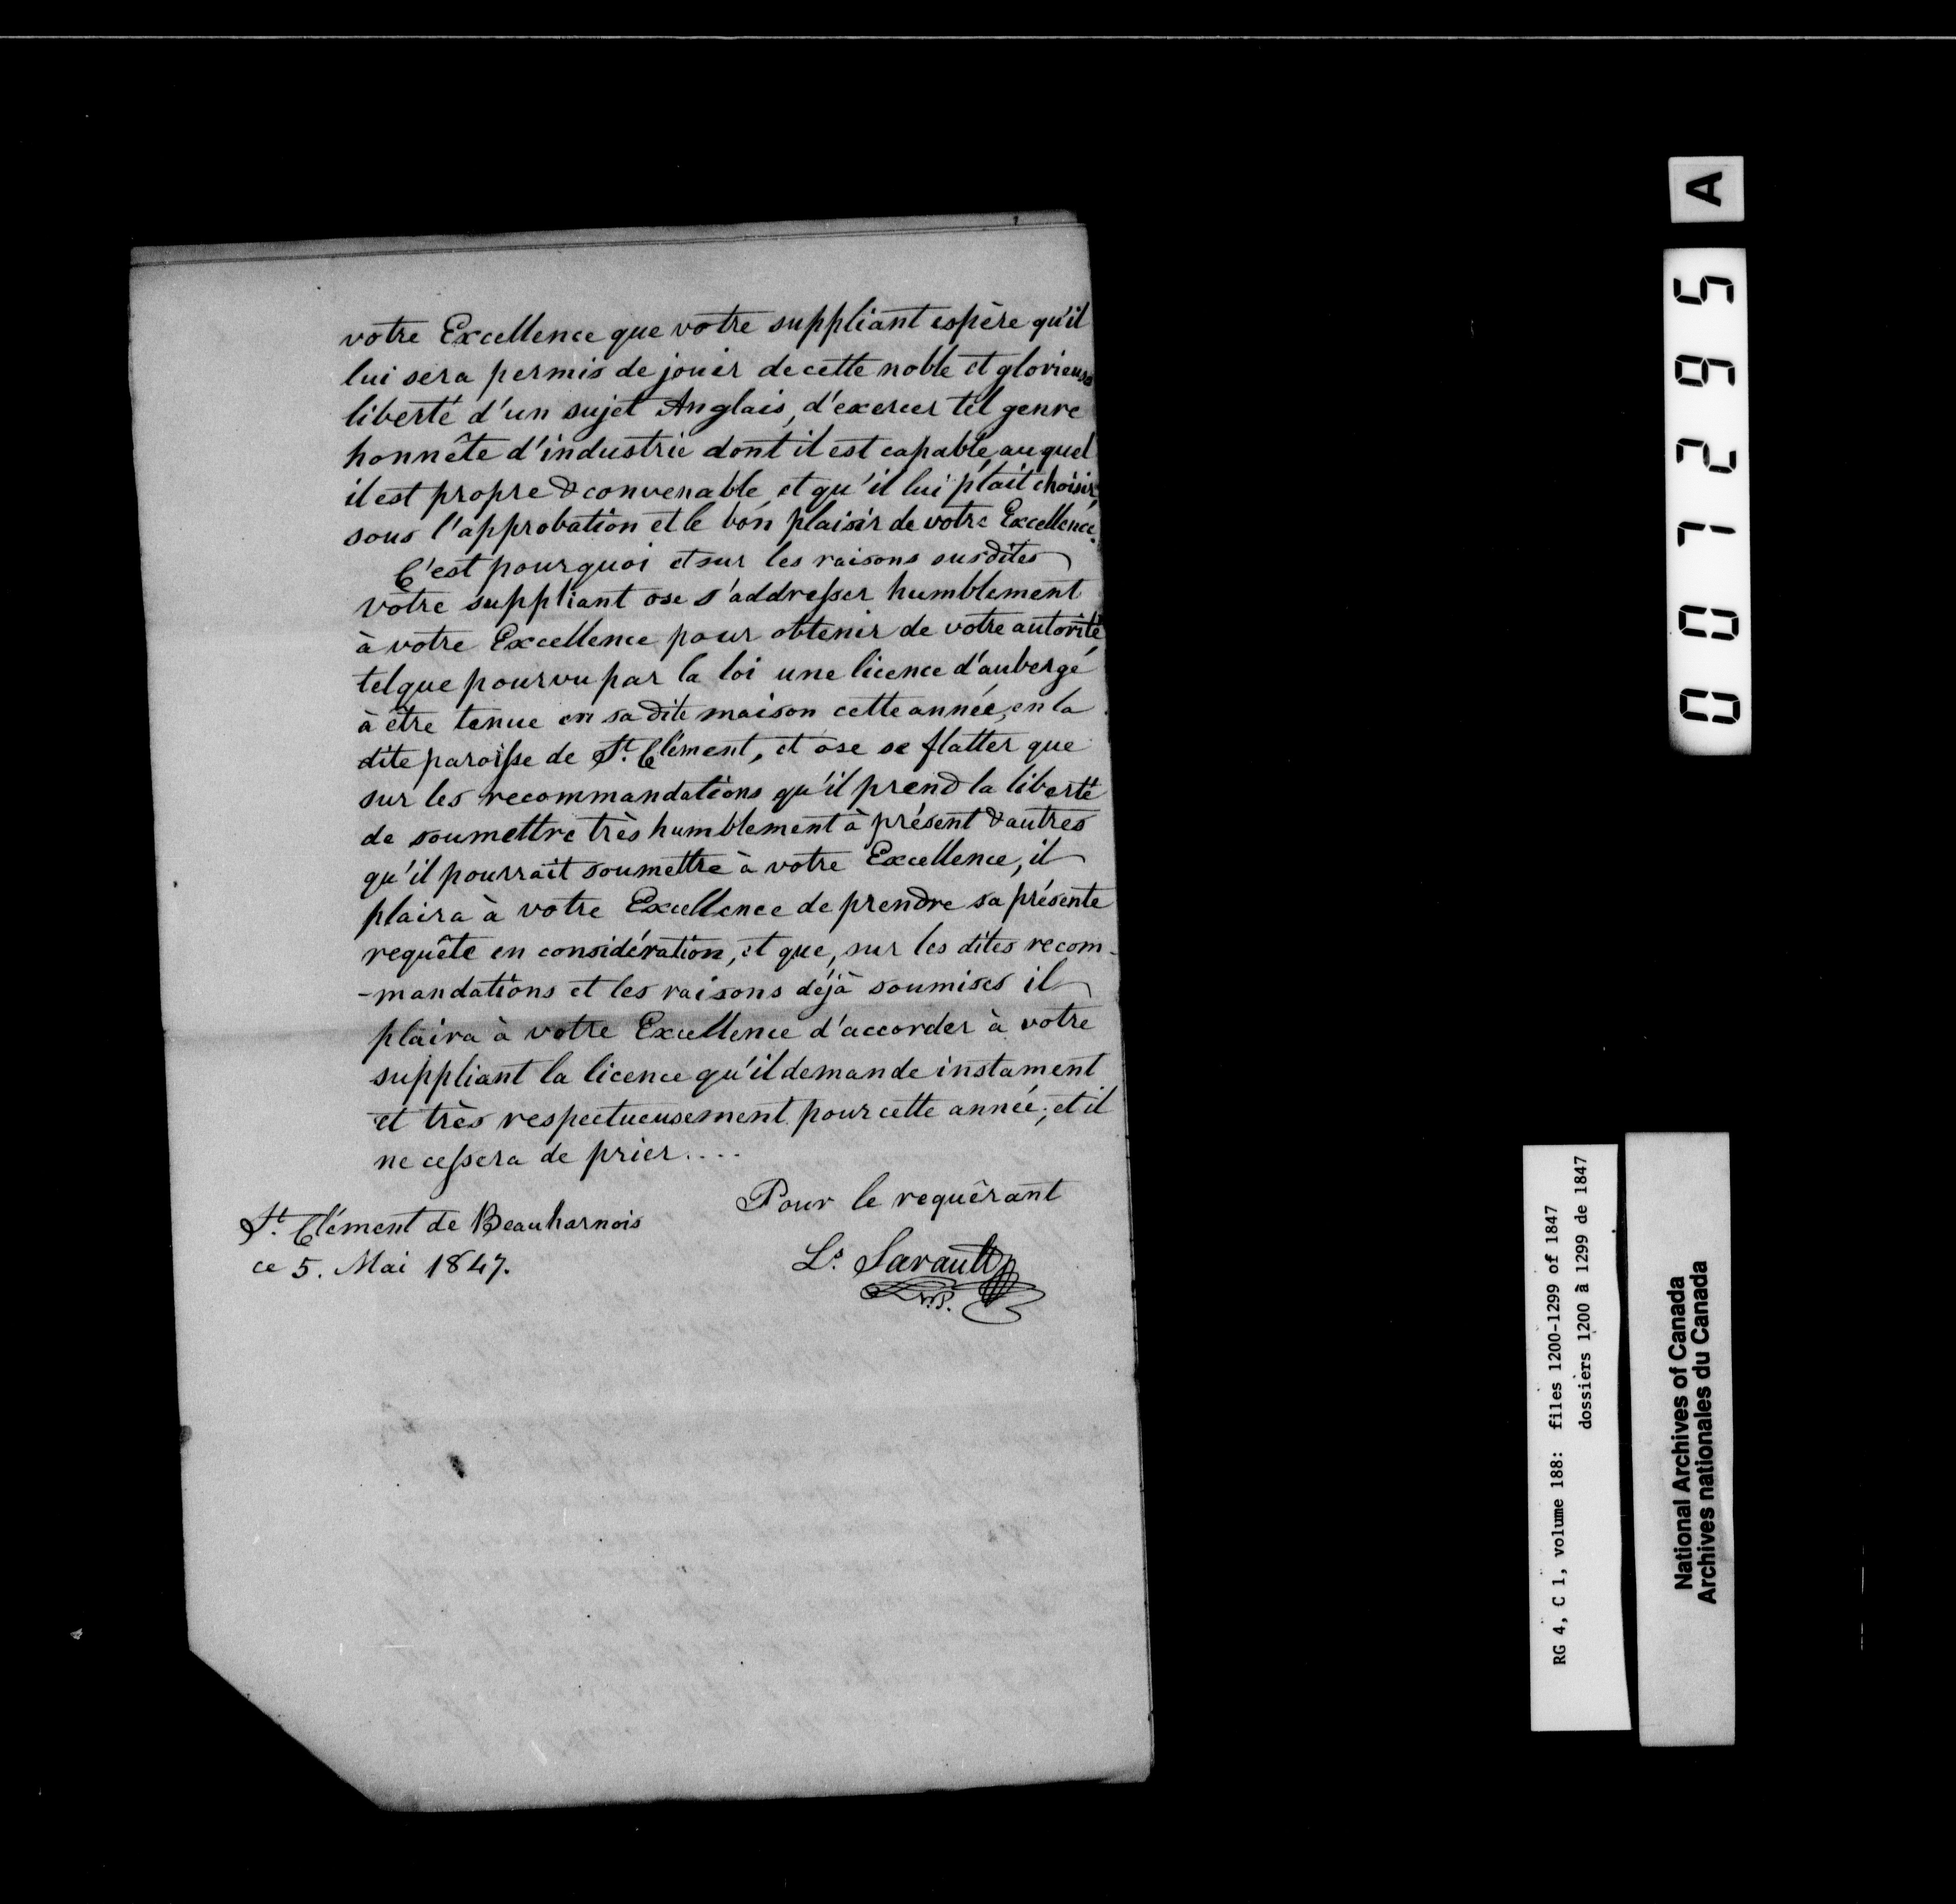 votre Excellence que votre suppliant espère qu'il
lui sera permis de jouir de cette noble et glorieuse
liberté d'un sujet Anglais, d'exercer tel genre
honnête d'industrie dont il est capable, auquel
il est propre & convenable, et qu'il lui plait choisir,
sous l'approbation et le bon plaisir de votre Excellence.
C'est pourquoi et sur les raisons susdites
votre suppliant ose s'addresser humblement
à votre Excellence pour obtenir de votre autorité,
telque pourvu par la loi une licence d'auberge
à être tenue en sa dite maison cette année, en la
dite paroisse de St. Clément, et ose se flatter que
sur les recommandations qu'il prend la liberté
de soumettre très humblement à présent & autres
qu'il pourrait soumettre à votre Excellence, il
plaira à votre Excellence de prendre sa présente
requête en considération, et que, sur les dites recom-
-mandations et les raisons déjà soumises il
plaira à votre Excellence d'accorder à votre
suppliant la licence qu'il demande instament
et très respectueusement pour cette année; et il
ne cessera de prier....
Pour le requérant
St. Clément de Beauharnois
ce 5. Mai 1847.
Ls. Sarault
N.P.
A
00712695
RG 4, C 1, volume 188: files 1200-1299 of 1847
dossiers 1200 à 1299 de 1847
National Archives of Canada
Archives nationales du Canada